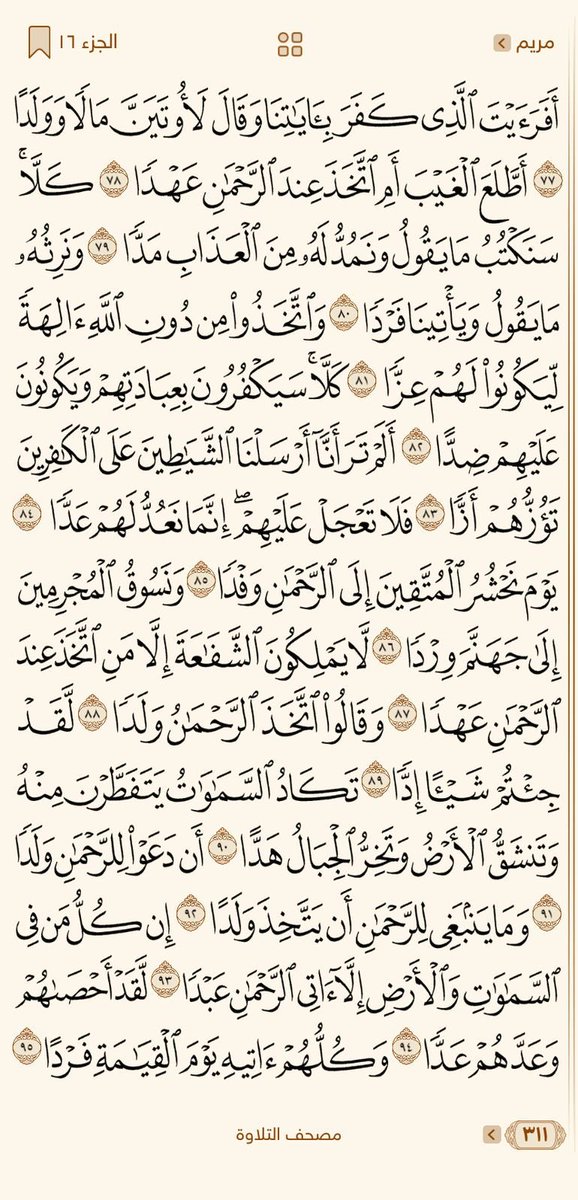 مريم
الجزء ١٦
أَفَرَءَيْتَ ٱلَّذِى كَفَرَ بِـَٔايَـٰتِنَا وَقَالَ لَأُوتَيَنَّ مَالًا وَوَلَدًا
٧٧ أَطَّلَعَ ٱلْغَيْبَ أَمِ ٱتَّخَذَ عِندَ ٱلرَّحْمَـٰنِ عَهْدًا ٧٨ كَلَّا ۚ
سَنَكْتُبُ مَا يَقُولُ وَنَمُدُّ لَهُۥ مِنَ ٱلْعَذَابِ مَدًّا ٧٩ وَنَرِثُهُۥ
مَا يَقُولُ وَيَأْتِينَا فَرْدًا ٨٠ وَٱتَّخَذُوا۟ مِن دُونِ ٱللَّهِ ءَالِهَةً
لِّيَكُونُوا۟ لَهُمْ عِزًّا ٨١ كَلَّا ۚ سَيَكْفُرُونَ بِعِبَادَتِهِمْ وَيَكُونُونَ
عَلَيْهِمْ ضِدًّا ٨٢ أَلَمْ تَرَ أَنَّآ أَرْسَلْنَا ٱلشَّيَـٰطِينَ عَلَى ٱلْكَـٰفِرِينَ
تَؤُزُّهُمْ أَزًّا ٨٣ فَلَا تَعْجَلْ عَلَيْهِمْ ۖ إِنَّمَا نَعُدُّ لَهُمْ عَدًّا ٨٤
يَوْمَ نَحْشُرُ ٱلْمُتَّقِينَ إِلَى ٱلرَّحْمَـٰنِ وَفْدًا ٨٥ وَنَسُوقُ ٱلْمُجْرِمِينَ
إِلَىٰ جَهَنَّمَ وِرْدًا ٨٦ لَّا يَمْلِكُونَ ٱلشَّفَـٰعَةَ إِلَّا مَنِ ٱتَّخَذَ عِندَ
ٱلرَّحْمَـٰنِ عَهْدًا ٨٧ وَقَالُوا۟ ٱتَّخَذَ ٱلرَّحْمَـٰنُ وَلَدًا ٨٨ لَّقَدْ
جِئْتُمْ شَيْـًٔا إِدًّا ٨٩ تَكَادُ ٱلسَّمَـٰوَٰتُ يَتَفَطَّرْنَ مِنْهُ
وَتَنشَقُّ ٱلْأَرْضُ وَتَخِرُّ ٱلْجِبَالُ هَدًّا ٩٠ أَن دَعَوْا۟ لِلرَّحْمَـٰنِ وَلَدًا
٩١ وَمَا يَنۢبَغِى لِلرَّحْمَـٰنِ أَن يَتَّخِذَ وَلَدًا ٩٢ إِن كُلُّ مَن فِى
ٱلسَّمَـٰوَٰتِ وَٱلْأَرْضِ إِلَّآ ءَاتِى ٱلرَّحْمَـٰنِ عَبْدًا ٩٣ لَّقَدْ أَحْصَىٰهُمْ
وَعَدَّهُمْ عَدًّا ٩٤ وَكُلُّهُمْ ءَاتِيهِ يَوْمَ ٱلْقِيَـٰمَةِ فَرْدًا ٩٥
٣١١
مصحف التلاوة